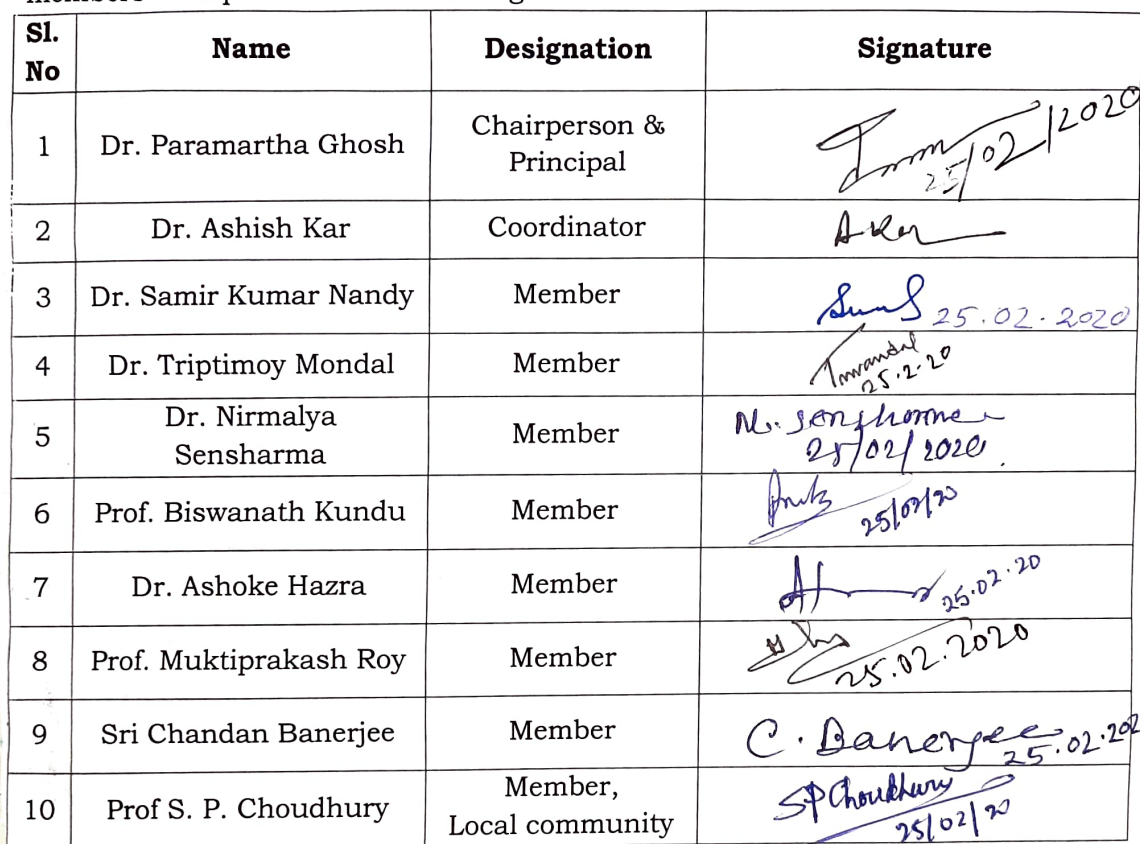 Sl. No Name Designation Signature
1 Dr. Paramartha Ghosh Chairperson & Principal 25/02/2020
2 Dr. Ashish Kar Coordinator A Kar
3 Dr. Samir Kumar Nandy Member 25.02.2020
4 Dr. Triptimoy Mondal Member Tmondal 25.2.20
5 Dr. Nirmalya Sensharma Member N. Sensharma 25/02/2020
6 Prof. Biswanath Kundu Member 25/02/20
7 Dr. Ashoke Hazra Member 25.02.20
8 Prof. Muktiprakash Roy Member 25.02.2020
9 Sri Chandan Banerjee Member C. Banerjee 25.02.202
10 Prof S. P. Choudhury Member, Local community SP Choudhury 25/02/20